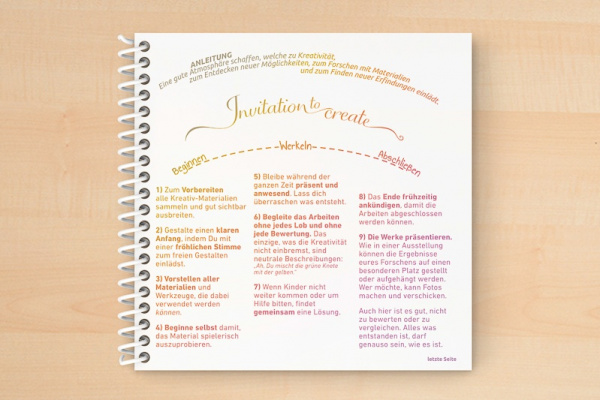 ANLEITUNG
Eine gute Atmosphäre schaffen, welche zu Kreativität,
zum Entdecken neuer Möglichkeiten, zum Forschen mit Materialien
und zum Finden neuer Erfindungen einlädt.
Invitation to create
Beginnen
Werkeln
Abschließen
1) Zum Vorbereiten
alle Kreativ-Materialien
sammeln und gut sichtbar
ausbreiten.
2) Gestalte einen klaren
Anfang, indem Du mit
einer fröhlichen Stimme
zum freien Gestalten
einlädst.
3) Vorstellen aller
Materialien und
Werkzeuge, die dabei
verwendet werden
können.
4) Beginne selbst damit,
das Material spielerisch
auszuprobieren.
5) Bleibe während der
ganzen Zeit präsent und
anwesend. Lass dich
überraschen was entsteht.
6) Begleite das Arbeiten
ohne jedes Lob und ohne
jede Bewertung. Das
einzige, was die Kreativität
nicht einbremst, sind
neutrale Beschreibungen:
„Ah, Du machst die grüne Knete
mit der gelben."
7) Wenn Kinder nicht
weiter kommen oder um
Hilfe bitten, findet
gemeinsam eine Lösung.
8) Das Ende frühzeitig
ankündigen, damit die
Arbeiten abgeschlossen
werden können.
9) Die Werke präsentieren.
Wie in einer Ausstellung
können die Ergebnisse
eures Forschens auf einen
besonderen Platz gestellt
oder aufgehängt werden.
Wer möchte, kann Fotos
machen und verschicken.
Auch hier ist es gut, nicht
zu bewerten oder zu
vergleichen. Alles was
entstanden ist, darf
genauso sein, wie es ist.
letzte Seite